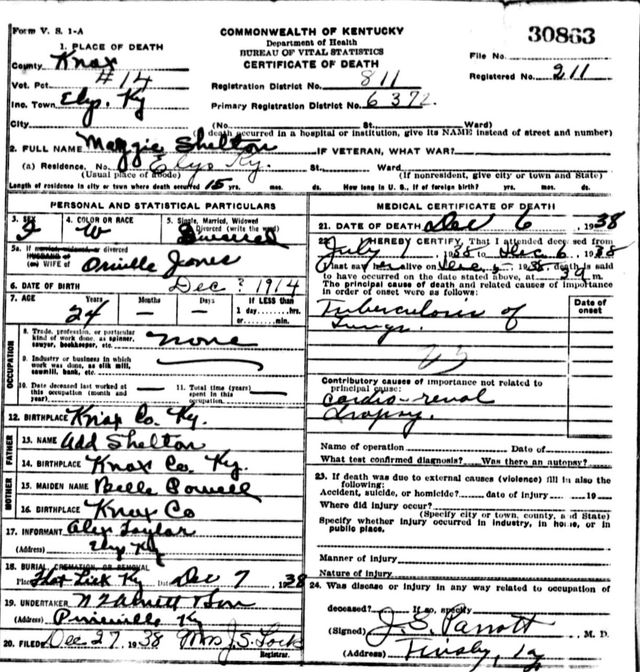 Form V. S. 1-A
COMMONWEALTH OF KENTUCKY
Department of Health
BUREAU OF VITAL STATISTICS
CERTIFICATE OF DEATH
30863
File No.
Registered No. 211
1. PLACE OF DEATH
County Knox
Vot. Pct. #14
Inc. Town Elys, Ky
City
Registration District No. 811
Primary Registration District No. 6372
(No. St. Ward)
(If death occurred in a hospital or institution, give its NAME instead of street and number)
2. FULL NAME Maggie Shelton IF VETERAN, WHAT WAR?
(a) Residence. No. Elys Ky. St. Ward
(Usual place of abode) (If nonresident, give city or town and State)
Length of residence in city or town where death occurred 15 yrs. mos. ds. How long in U. S., if of foreign birth? yrs. mos. ds.
PERSONAL AND STATISTICAL PARTICULARS
3. SEX F
4. COLOR OR RACE W
5. Single, Married, Widowed
Divorced (write the word)
5a. If married, widowed, or divorced
HUSBAND of
(or) WIFE of Orville Jones
6. DATE OF BIRTH Dec ? 1914
7. AGE Years Months Days If LESS than
24 — — 1 day hrs.
or min.
OCCUPATION
8. Trade, profession, or particular
kind of work done, as spinner,
sawyer, bookkeeper, etc. none
9. Industry or business in which
work was done, as silk mill,
sawmill, bank, etc. —
10. Date deceased last worked at
this occupation (month and
year) —
11. Total time (years)
spent in this
occupation —
12. BIRTHPLACE Knox Co. Ky.
FATHER
13. NAME Add Shelton
14. BIRTHPLACE Knox Co. Ky.
MOTHER
15. MAIDEN NAME Belle Powell
16. BIRTHPLACE Knox Co
17. INFORMANT Alex Taylor
(Address) Elys Ky
18. BURIAL, CREMATION, OR REMOVAL
Place Flat Lick Ky Date Dec 7 1938
19. UNDERTAKER & Son
(Address) Pineville Ky
20. FILED Dec 27 1938 Mrs J.S. Lock
Registrar.
MEDICAL CERTIFICATE OF DEATH
21. DATE OF DEATH Dec 6, 1938
22. I HEREBY CERTIFY, That I attended deceased from
July 1 1938 to Dec 6, 1938
I last saw alive on Dec 1938, death is said
to have occurred on the date stated above, at m.
The principal cause of death and related causes of importance
in order of onset were as follows:
Date of
onset
Tuberculosis of
Lungs.
Contributory causes of importance not related to
principal cause:
Cardio-renal
Dropsy.
Name of operation Date of
What test confirmed diagnosis? Was there an autopsy?
23. If death was due to external causes (violence) fill in also the
following:
Accident, suicide, or homicide? date of injury 19
Where did injury occur?
(Specify city or town, county, and State)
Specify whether injury occurred in industry, in home, or in
public place.
Manner of injury
Nature of injury
24. Was disease or injury in any way related to occupation of
deceased? If so, specify
(Signed) J.S. Parrott M. D.
(Address) Tinsley, Ky